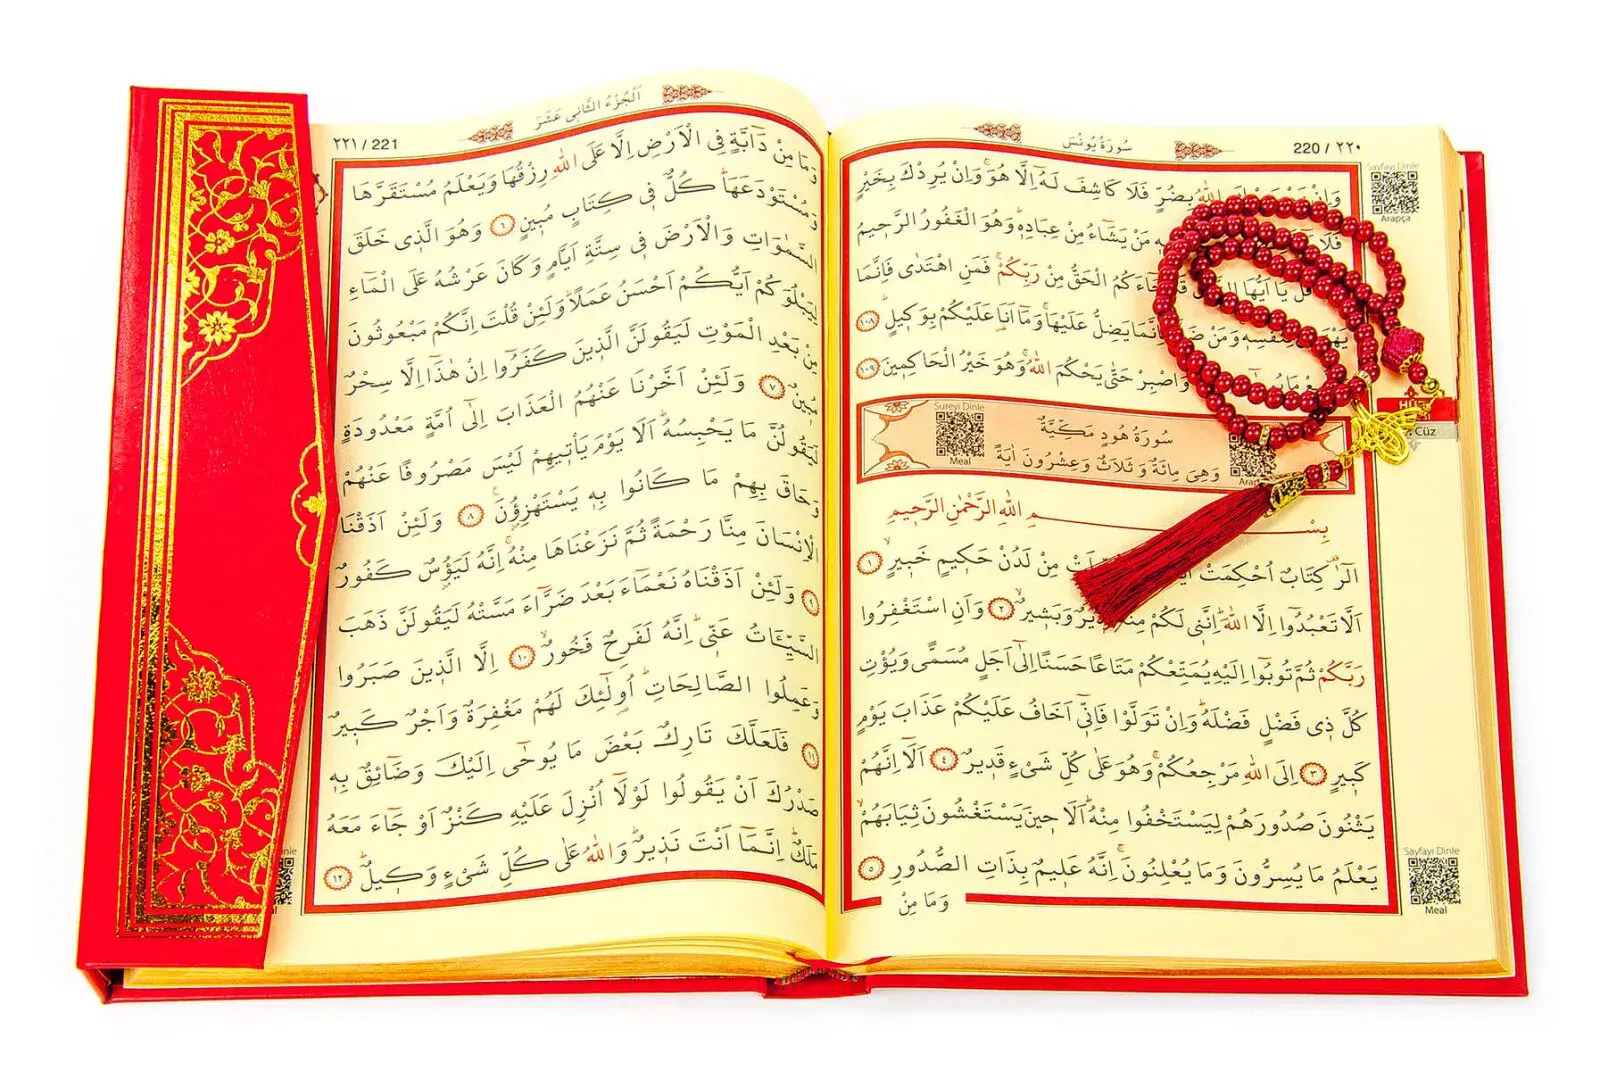 سُورَةُ يُونُسَ
220 / ٢٢٠
Sayfayı Dinle
Arapça
وَاِنْ اللّٰهُ بِضُرٍّ فَلَا كَاشِفَ لَهُٓ اِلَّا هُوَۚ وَاِنْ يُرِدْكَ بِخَيْرٍ
فَلَا مَنْ يَشَٓاءُ مِنْ عِبَادِه۪ۜ وَهُوَ الْغَفُورُ الرَّح۪يمُ
قُلْ يَٓا اَيُّهَا قَدْ جَٓاءَكُمُ الْحَقُّ مِنْ رَبِّكُمْۚ فَمَنِ اهْتَدٰى فَاِنَّمَا
لِنَفْسِه۪ۚ وَمَنْ فَاِنَّمَا يَضِلُّ عَلَيْهَاۚ وَمَٓا اَنَا۬ عَلَيْكُمْ بِوَك۪يلٍۜ ١٠٨
وَاصْبِرْ حَتّٰى يَحْكُمَ اللّٰهُۚ وَهُوَ خَيْرُ الْحَاكِم۪ينَ ١٠٩
Cüz
Sureyi Dinle
Meal
سُورَةُ هُودٍ مَكِّيَّةٌ
وَهِيَ مِائَةٌ وَ ثَلَاثٌ وَعِشْرُونَ اٰيَةً
بِسْمِ اللّٰهِ الرَّحْمٰنِ الرَّح۪يمِ
الٓرٰ۠ كِتَابٌ اُحْكِمَتْ مِنْ لَدُنْ حَك۪يمٍ خَب۪يرٍۙ ١
اَلَّا تَعْبُدُٓوا اِلَّا اللّٰهَۜ اِنَّن۪ي لَكُمْ مِنْهُ نَذ۪يرٌ وَبَش۪يرٌۙ ٢ وَاَنِ اسْتَغْفِرُوا
رَبَّكُمْ ثُمَّ تُوبُٓوا اِلَيْهِ يُمَتِّعْكُمْ مَتَاعًا حَسَنًا اِلٰٓى اَجَلٍ مُسَمًّى وَيُؤْتِ
كُلَّ ذ۪ي فَضْلٍ فَضْلَهُۜ وَاِنْ تَوَلَّوْا فَاِنّ۪ٓي اَخَافُ عَلَيْكُمْ عَذَابَ يَوْمٍ
كَب۪يرٍ ٣ اِلَى اللّٰهِ مَرْجِعُكُمْۚ وَهُوَ عَلٰى كُلِّ شَيْءٍ قَد۪يرٌ ٤ اَلَٓا اِنَّهُمْ
يَثْنُونَ صُدُورَهُمْ لِيَسْتَخْفُوا مِنْهُۜ اَلَا ح۪ينَ يَسْتَغْشُونَ ثِيَابَهُمْۙ
يَعْلَمُ مَا يُسِرُّونَ وَمَا يُعْلِنُونَۚ اِنَّهُ عَل۪يمٌ بِذَاتِ الصُّدُورِ ٥
وَمَا مِنْ
Sayfayı Dinle
Meal
اَلْجُزْءُ الثَّان۪ي عَشَرَ
٢٢١ / 221
وَمَا مِنْ دَٓابَّةٍ فِي الْاَرْضِ اِلَّا عَلَى اللّٰهِ رِزْقُهَا وَيَعْلَمُ مُسْتَقَرَّهَا
وَمُسْتَوْدَعَهَاۜ كُلٌّ ف۪ي كِتَابٍ مُب۪ينٍ ٦ وَهُوَ الَّذ۪ي خَلَقَ
السَّمٰوَاتِ وَالْاَرْضَ ف۪ي سِتَّةِ اَيَّامٍ وَكَانَ عَرْشُهُ عَلَى الْمَٓاءِ
لِيَبْلُوَكُمْ اَيُّكُمْ اَحْسَنُ عَمَلًاۜ وَلَئِنْ قُلْتَ اِنَّكُمْ مَبْعُوثُونَ
مِنْ بَعْدِ الْمَوْتِ لَيَقُولَنَّ الَّذ۪ينَ كَفَرُٓوا اِنْ هٰذَٓا اِلَّا سِحْرٌ
مُب۪ينٌ ٧ وَلَئِنْ اَخَّرْنَا عَنْهُمُ الْعَذَابَ اِلٰٓى اُمَّةٍ مَعْدُودَةٍ
لَيَقُولُنَّ مَا يَحْبِسُهُۜ اَلَا يَوْمَ يَأْت۪يهِمْ لَيْسَ مَصْرُوفًا عَنْهُمْ
وَحَاقَ بِهِمْ مَا كَانُوا بِه۪ يَسْتَهْزِؤُ۫نَ۟ ٨ وَلَئِنْ اَذَقْنَا
الْاِنْسَانَ مِنَّا رَحْمَةً ثُمَّ نَزَعْنَاهَا مِنْهُۚ اِنَّهُ لَيَؤُ۫سٌ كَفُورٌ
٩ وَلَئِنْ اَذَقْنَاهُ نَعْمَٓاءَ بَعْدَ ضَرَّٓاءَ مَسَّتْهُ لَيَقُولَنَّ ذَهَبَ
السَّيِّـَٔاتُ عَنّ۪يۜ اِنَّهُ لَفَرِحٌ فَخُورٌۙ ١٠ اِلَّا الَّذ۪ينَ صَبَرُوا
وَعَمِلُوا الصَّالِحَاتِۜ اُو۬لٰٓئِكَ لَهُمْ مَغْفِرَةٌ وَاَجْرٌ كَب۪يرٌ
١١ فَلَعَلَّكَ تَارِكٌ بَعْضَ مَا يُوحٰٓى اِلَيْكَ وَضَٓائِقٌ بِه۪
صَدْرُكَ اَنْ يَقُولُوا لَوْلَٓا اُنْزِلَ عَلَيْهِ كَنْزٌ اَوْ جَٓاءَ مَعَهُ
مَلَكٌۜ اِنَّمَٓا اَنْتَ نَذ۪يرٌۜ وَاللّٰهُ عَلٰى كُلِّ شَيْءٍ وَك۪يلٌۜ ١٢